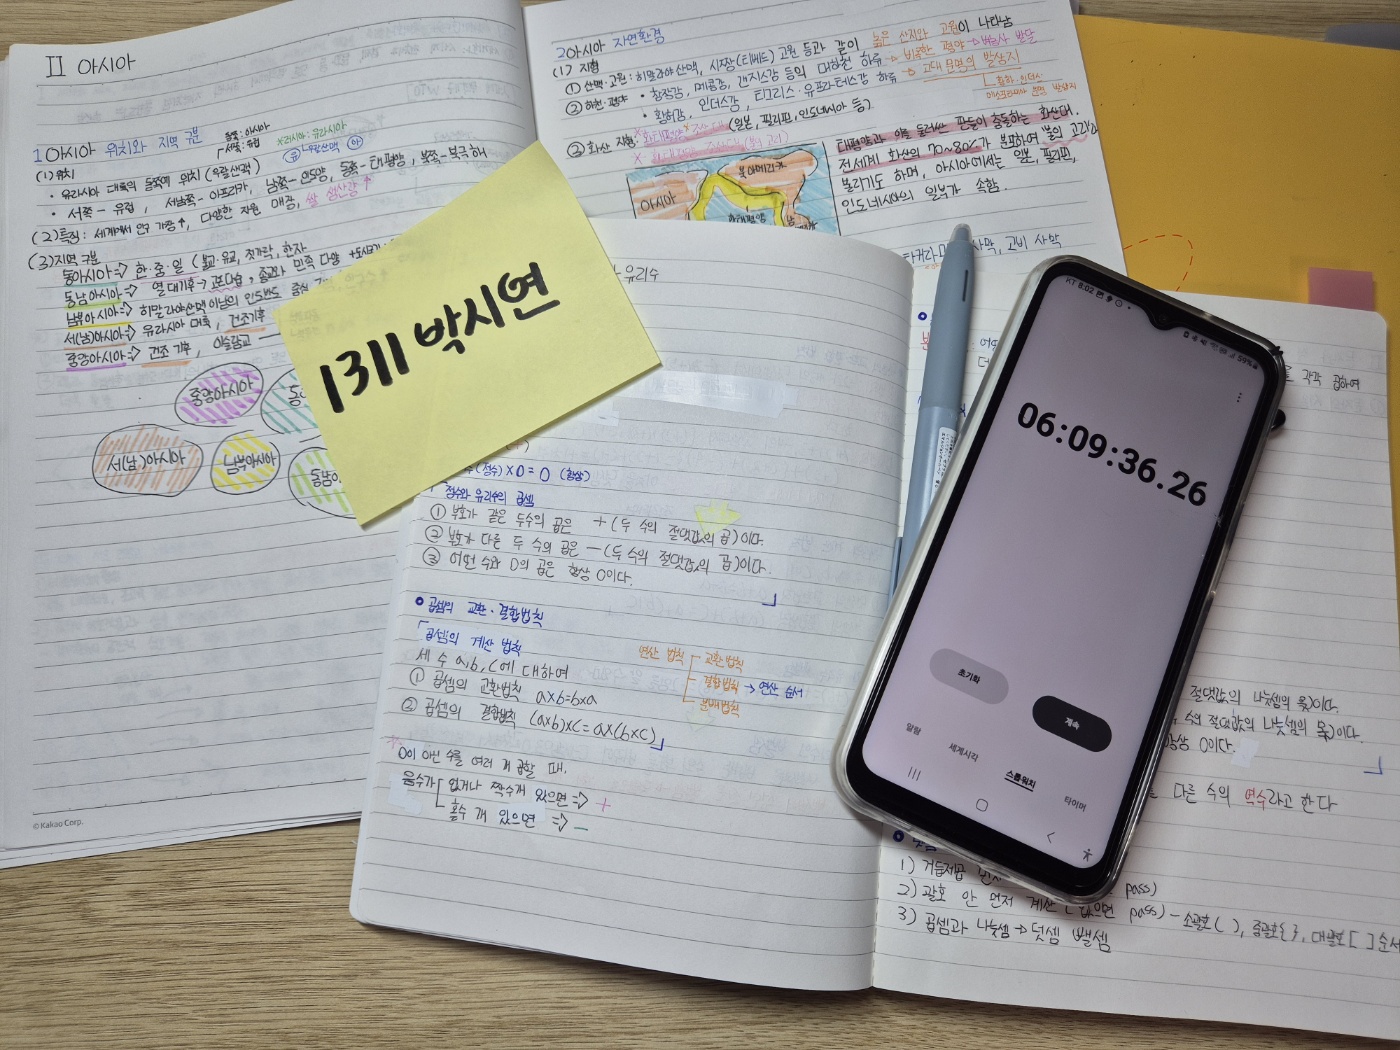 II 아시아
1 아시아 위치와 지역 구분
동쪽: 아시아
서쪽: 유럽
*러시아: 유라시아
(1) 위치
• 유라시아 대륙의 동쪽에 위치 (우랄산맥)
• 서쪽 - 유럽, 서남쪽 - 아프리카, 남쪽 - 인도양, 동쪽 - 태평양, 북쪽 - 북극해
(2) 특징: 세계에서 인구 가장↑, 다양한 자원 매장, 쌀 생산량↑
(3) 지역 구분
동아시아 => 한·중·일 (불교·유교, 젓가락, 한자
동남아시아 => 열대기후 → 고온다습, 종교와 민족 다양
남부아시아 => 히말라야산맥 이남의 인도반도 중심
서(남)아시아 => 유라시아 대륙, 건조기후
중앙아시아 => 건조 기후, 이슬람교
중앙아시아
서(남)아시아
남부아시아
동남아
© Kakao Corp.
2 아시아 자연환경
(1) 지형
① 산맥·고원: 히말라야 산맥, 시짱(티베트) 고원 등과 같이 높은 산지와 고원이 나타남
② 하천·평야 • 황장강, 메콩강, 갠지스강 등의 대하천 하류 → 비옥한 평야 → 벼농사 발달
• 황허강, 인더스강, 티그리스·유프라테스강 하류 → 고대 문명의 발상지
③ 화산 지형: 환태평양 조산대 (일본, 필리핀, 인도네시아 등)
태평양과 이를 둘러싼 판들이 충돌하는 화산대.
전세계 화산의 70~80%가 분포하여 '불의 고리'라
불리기도 하며, 아시아에서는 일본, 필리핀,
인도네시아의 일부가 속함.
아시아
북아메리카
환태평양
사막, 고비 사막
1311 박시연
유리수
(정수) × 0 = 0 (항상)
정수와 유리수의 곱셈
① 부호가 같은 두수의 곱은 +(두 수의 절댓값의 곱)이다.
② 부호가 다른 두 수의 곱은 -(두 수의 절댓값의 곱)이다.
③ 어떤 수와 0의 곱은 항상 0이다.
• 곱셈의 교환·결합법칙
「곱셈의 계산 법칙
세 수 a, b, c에 대하여
① 곱셈의 교환법칙 a×b=b×a
② 곱셈의 결합법칙 (a×b)×c=a×(b×c)」
연산 법칙
교환법칙
결합법칙 → 연산 순서
분배법칙
* 0이 아닌 수를 여러 개 곱할 때,
음수가 없거나 짝수개 있으면 => +
홀수 개 있으면 => -
각각 곱하여
절댓값의 나눗셈의 몫)이다.
수의 절댓값의 나눗셈의 몫)이다.
항상 0이다.
다른 수의 역수라고 한다
1) 거듭제곱 먼저
pass)
2) 괄호 안 먼저 계산 (없으면 pass) - 소괄호( ), 중괄호{ }, 대괄호[ ] 순서
3) 곱셈과 나눗셈 → 덧셈 뺄셈
KT 8:02
59%
06:09:36.26
초기화
계속
알람
세계시각
스톱워치
타이머